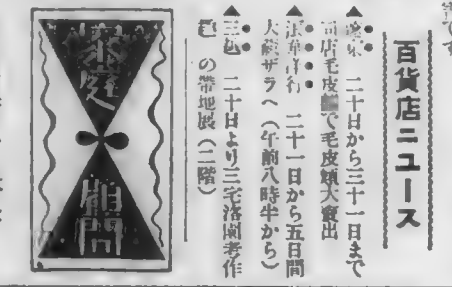 百貨店ニュース
▲ 二十日から三十一日まで
店毛皮 で毛皮類大賣出
▲浪華洋行 二十一日から五日間
大蔵ザラへ(午前八時半から)
▲三 二十日より三宅 考作
の帶地展(二階)
家庭
顧問